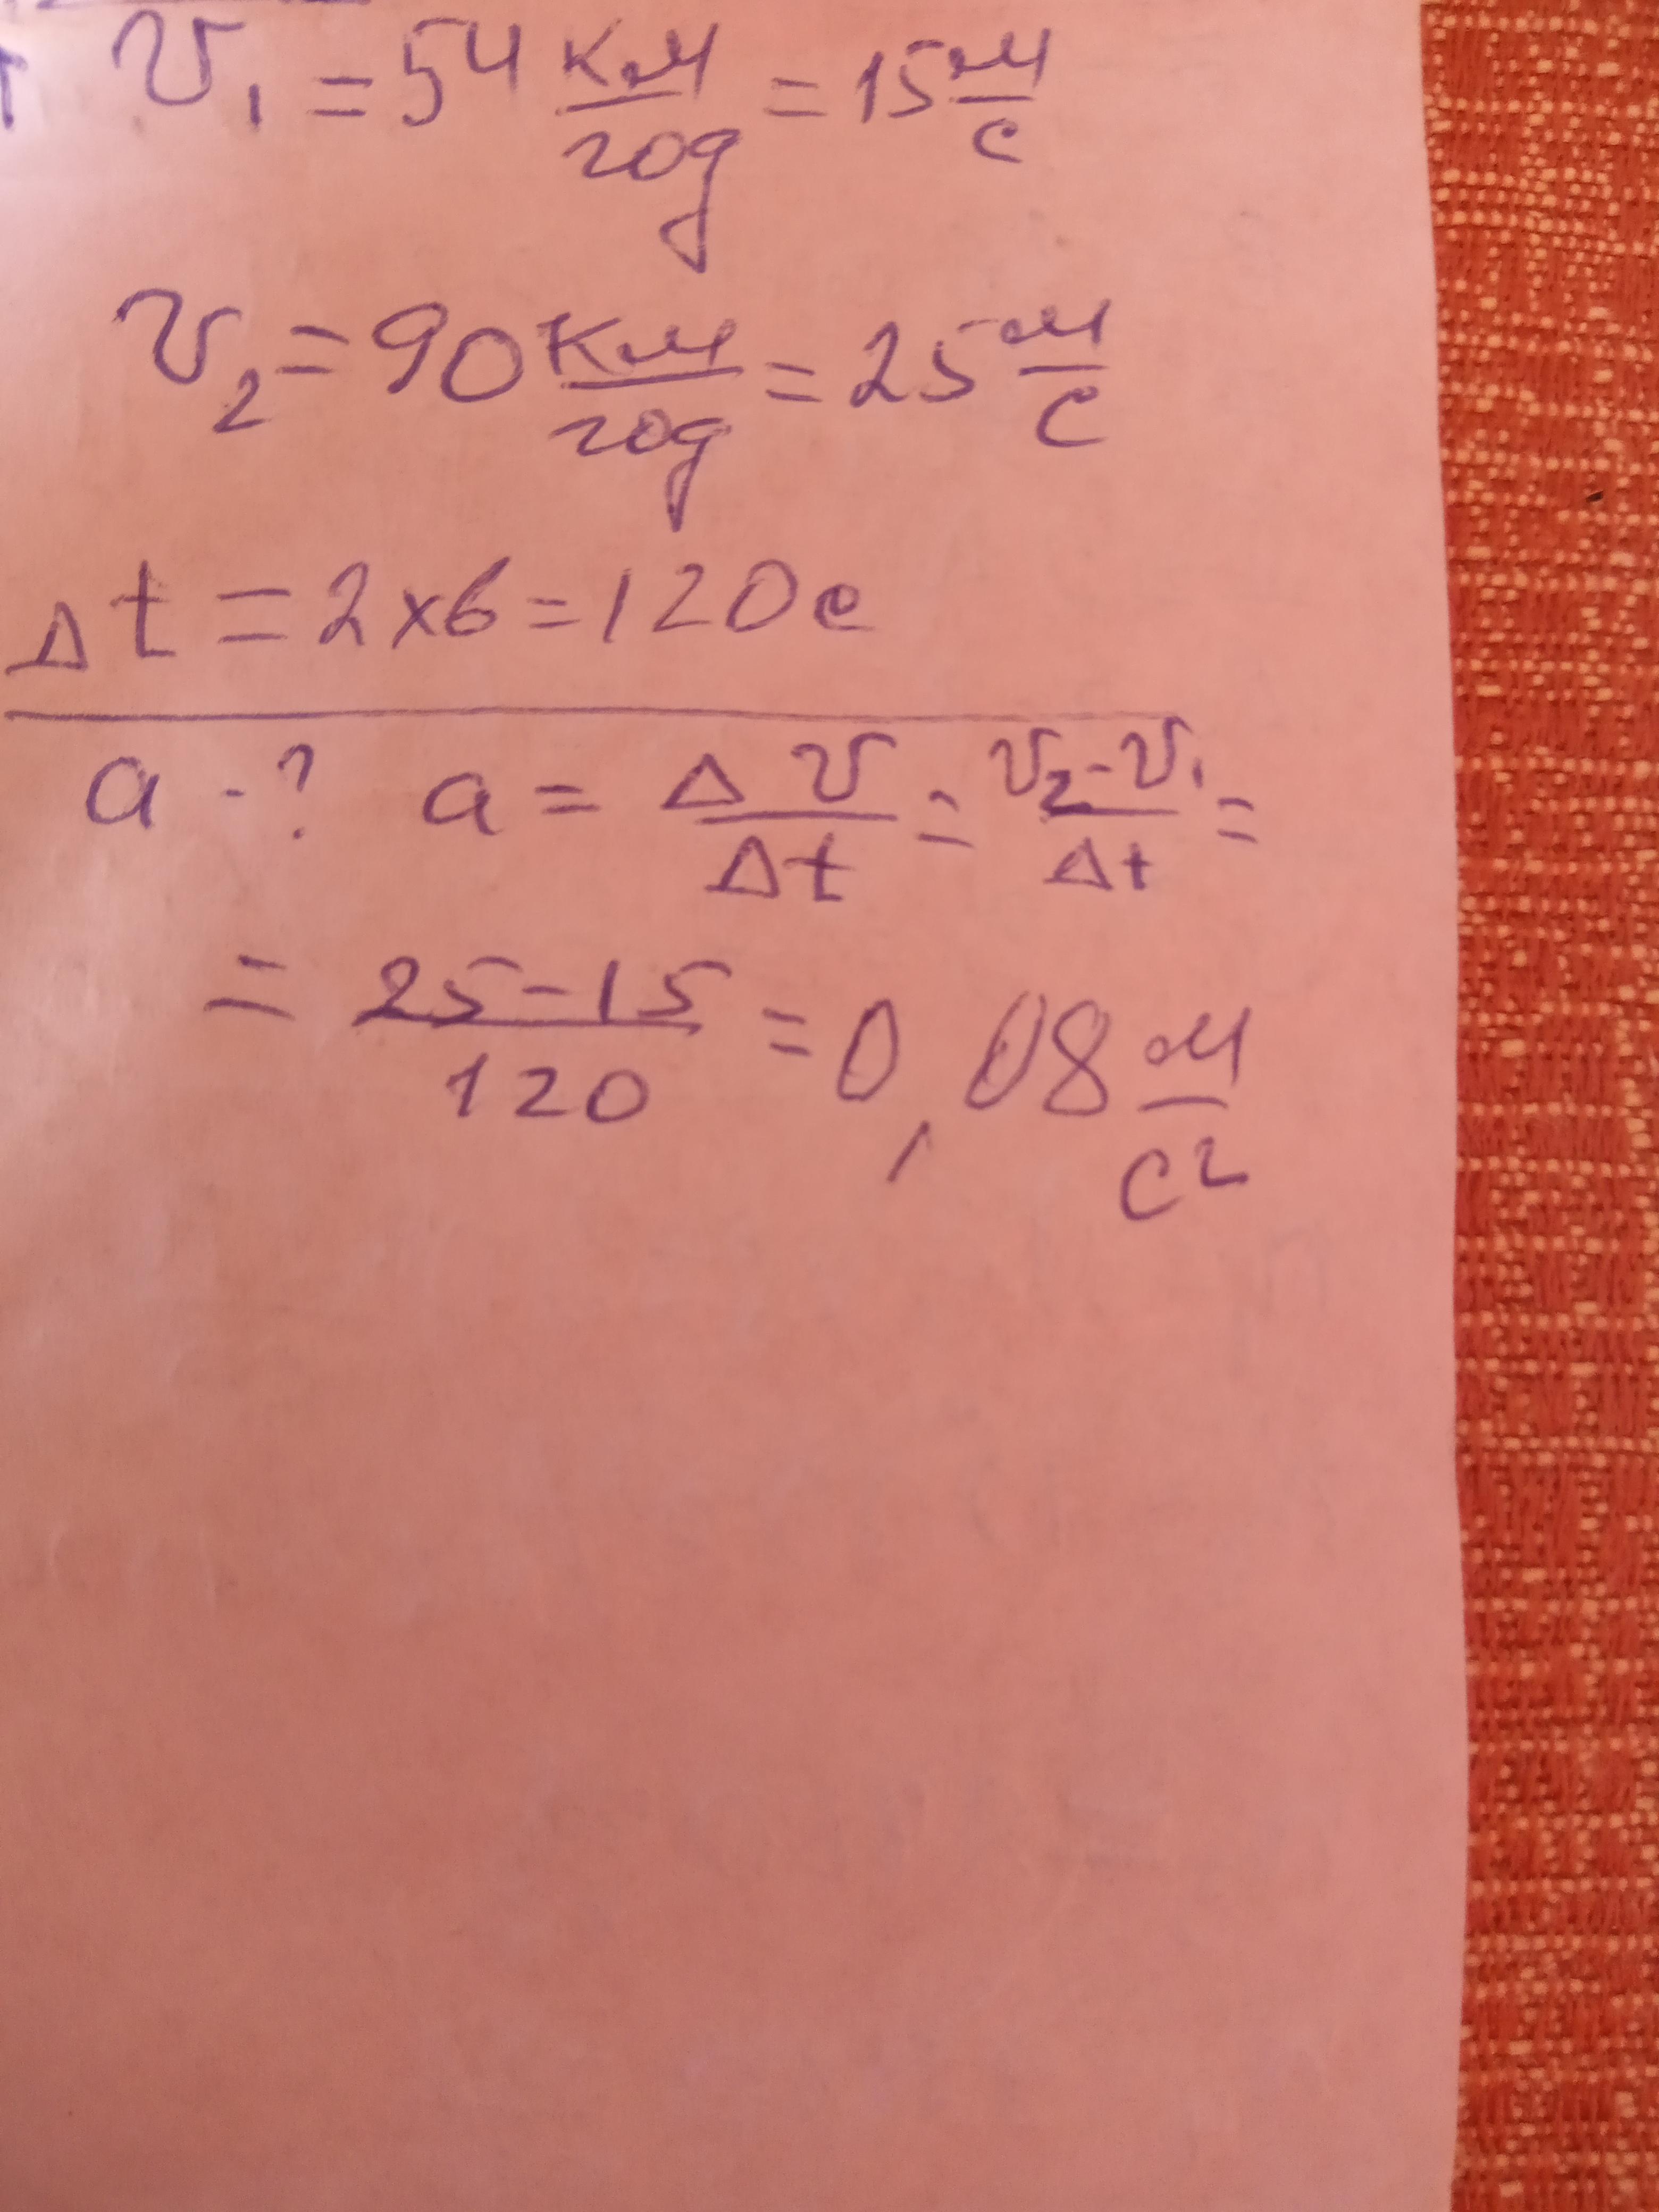 υ₁ = 54 км/год = 15 м/с
υ₂ = 90 км/год = 25 м/с
Δt = 2x6 = 120 с
a - ? a = Δυ/Δt = υ₂-υ₁/Δt =
= 25-15/120 = 0,08 м/с²